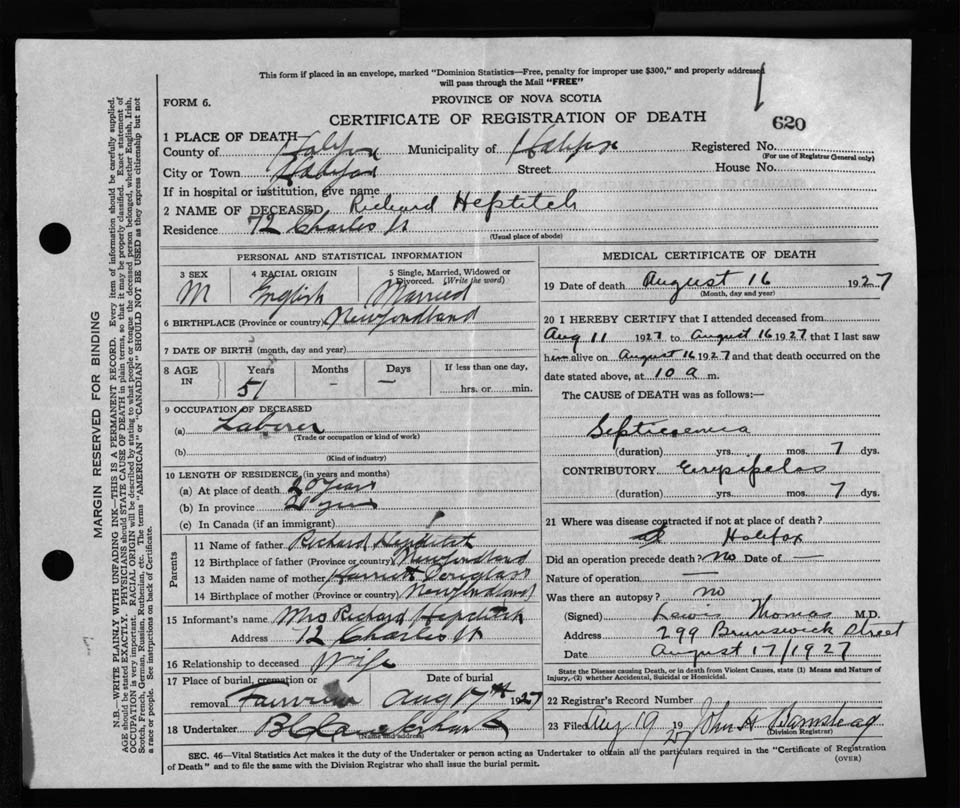 This form if placed in an envelope, marked "Dominion Statistics—Free, penalty for improper use $300," and properly addressed
will pass through the Mail "FREE"
FORM 6.
PROVINCE OF NOVA SCOTIA
CERTIFICATE OF REGISTRATION OF DEATH
620
1 PLACE OF DEATH
County of Halifax Municipality of Halifax Registered No.
(For use of Registrar General only)
City or Town Halifax Street House No.
If in hospital or institution, give name
2 NAME OF DECEASED Richard Heptitch
Residence 72 Charles St
(Usual place of abode)
PERSONAL AND STATISTICAL INFORMATION
3 SEX 4 RACIAL ORIGIN 5 Single, Married, Widowed or Divorced. (Write the word)
M English Married
6 BIRTHPLACE (Province or country) Newfoundland
7 DATE OF BIRTH (month, day and year)
8 AGE IN Years Months Days If less than one day,
51 – – hrs. or min.
9 OCCUPATION OF DECEASED
(a) Laborer
(Trade or occupation or kind of work)
(b)
(Kind of industry)
10 LENGTH OF RESIDENCE (in years and months)
(a) At place of death 20 years
(b) In province 20 years
(c) In Canada (if an immigrant)
Parents
11 Name of father Richard
12 Birthplace of father (Province or country) Newfoundland
13 Maiden name of mother Harriet Douglass
14 Birthplace of mother (Province or country) Newfoundland
15 Informant's name Mrs Richard Hepditch
Address 72 Charles St
16 Relationship to deceased Wife
17 Place of burial, cremation or removal Fairview Date of burial Aug 17th 1927
18 Undertaker
(Name and address)
MEDICAL CERTIFICATE OF DEATH
19 Date of death August 16 1927
(Month, day and year)
20 I HEREBY CERTIFY that I attended deceased from
Aug 11 1927 to August 16 1927 that I last saw
him alive on August 16 1927 and that death occurred on the
date stated above, at 10 a m.
The CAUSE of DEATH was as follows:—
Septicaemia
(duration) yrs. mos. 7 dys.
CONTRIBUTORY Erysipelas
(duration) yrs. mos. 7 dys.
21 Where was disease contracted if not at place of death?
at Halifax
Did an operation precede death? no Date of —
Nature of operation —
Was there an autopsy? no
(Signed) Lewis Thomas M.D.
Address 299 Brunswick Street
Date August 17/1927
State the Disease causing Death, or in death from Violent Causes, state (1) Means and Nature of
Injury, (2) whether Accidental, Suicidal or Homicidal.
22 Registrar's Record Number
23 Filed Aug 19 1927 John H Barnstead
(Division Registrar)
SEC. 46—Vital Statistics Act makes it the duty of the Undertaker or person acting as Undertaker to obtain all the particulars required in the "Certificate of Registration
of Death" and to file the same with the Division Registrar who shall issue the burial permit.
(OVER)
MARGIN RESERVED FOR BINDING
N.B. WRITE PLAINLY WITH UNFADING INK—THIS IS A PERMANENT RECORD. Every item of information should be carefully supplied.
AGE should be stated EXACTLY. PHYSICIANS should STATE CAUSE OF DEATH in plain terms, so that it may be properly classified. Exact statement of
OCCUPATION is very important. RACIAL ORIGIN will be described by stating to what people or tongue the deceased person belonged, whether English, Irish,
Scotch, French, German, Russian, Ruthenian, etc. The terms "AMERICAN" or "CANADIAN" SHOULD NOT BE USED as they express citizenship but not
a race or people. See instructions on back of Certificate.